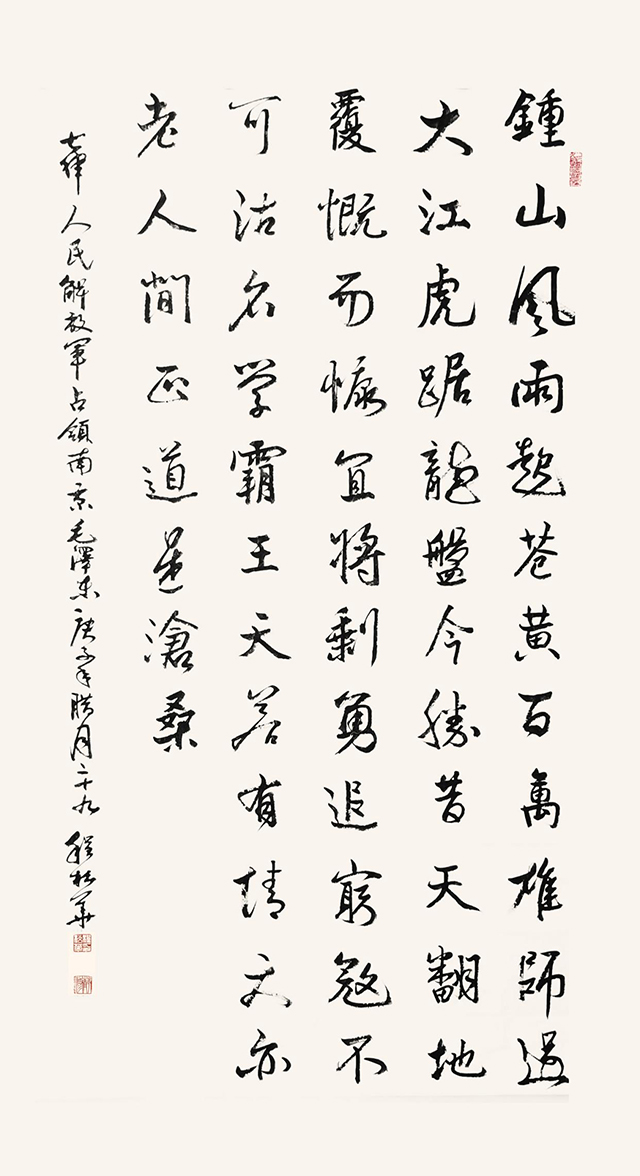 鍾山風雨起苍黄百萬雄師過
大江虎踞龍盤今勝昔天翻地
覆慨而慷宜將剩勇追窮寇不
可沽名学霸王天若有情天亦
老人間正道是滄桑
七律人民解放軍占領南京毛澤东庚子年腊月二十九程松華